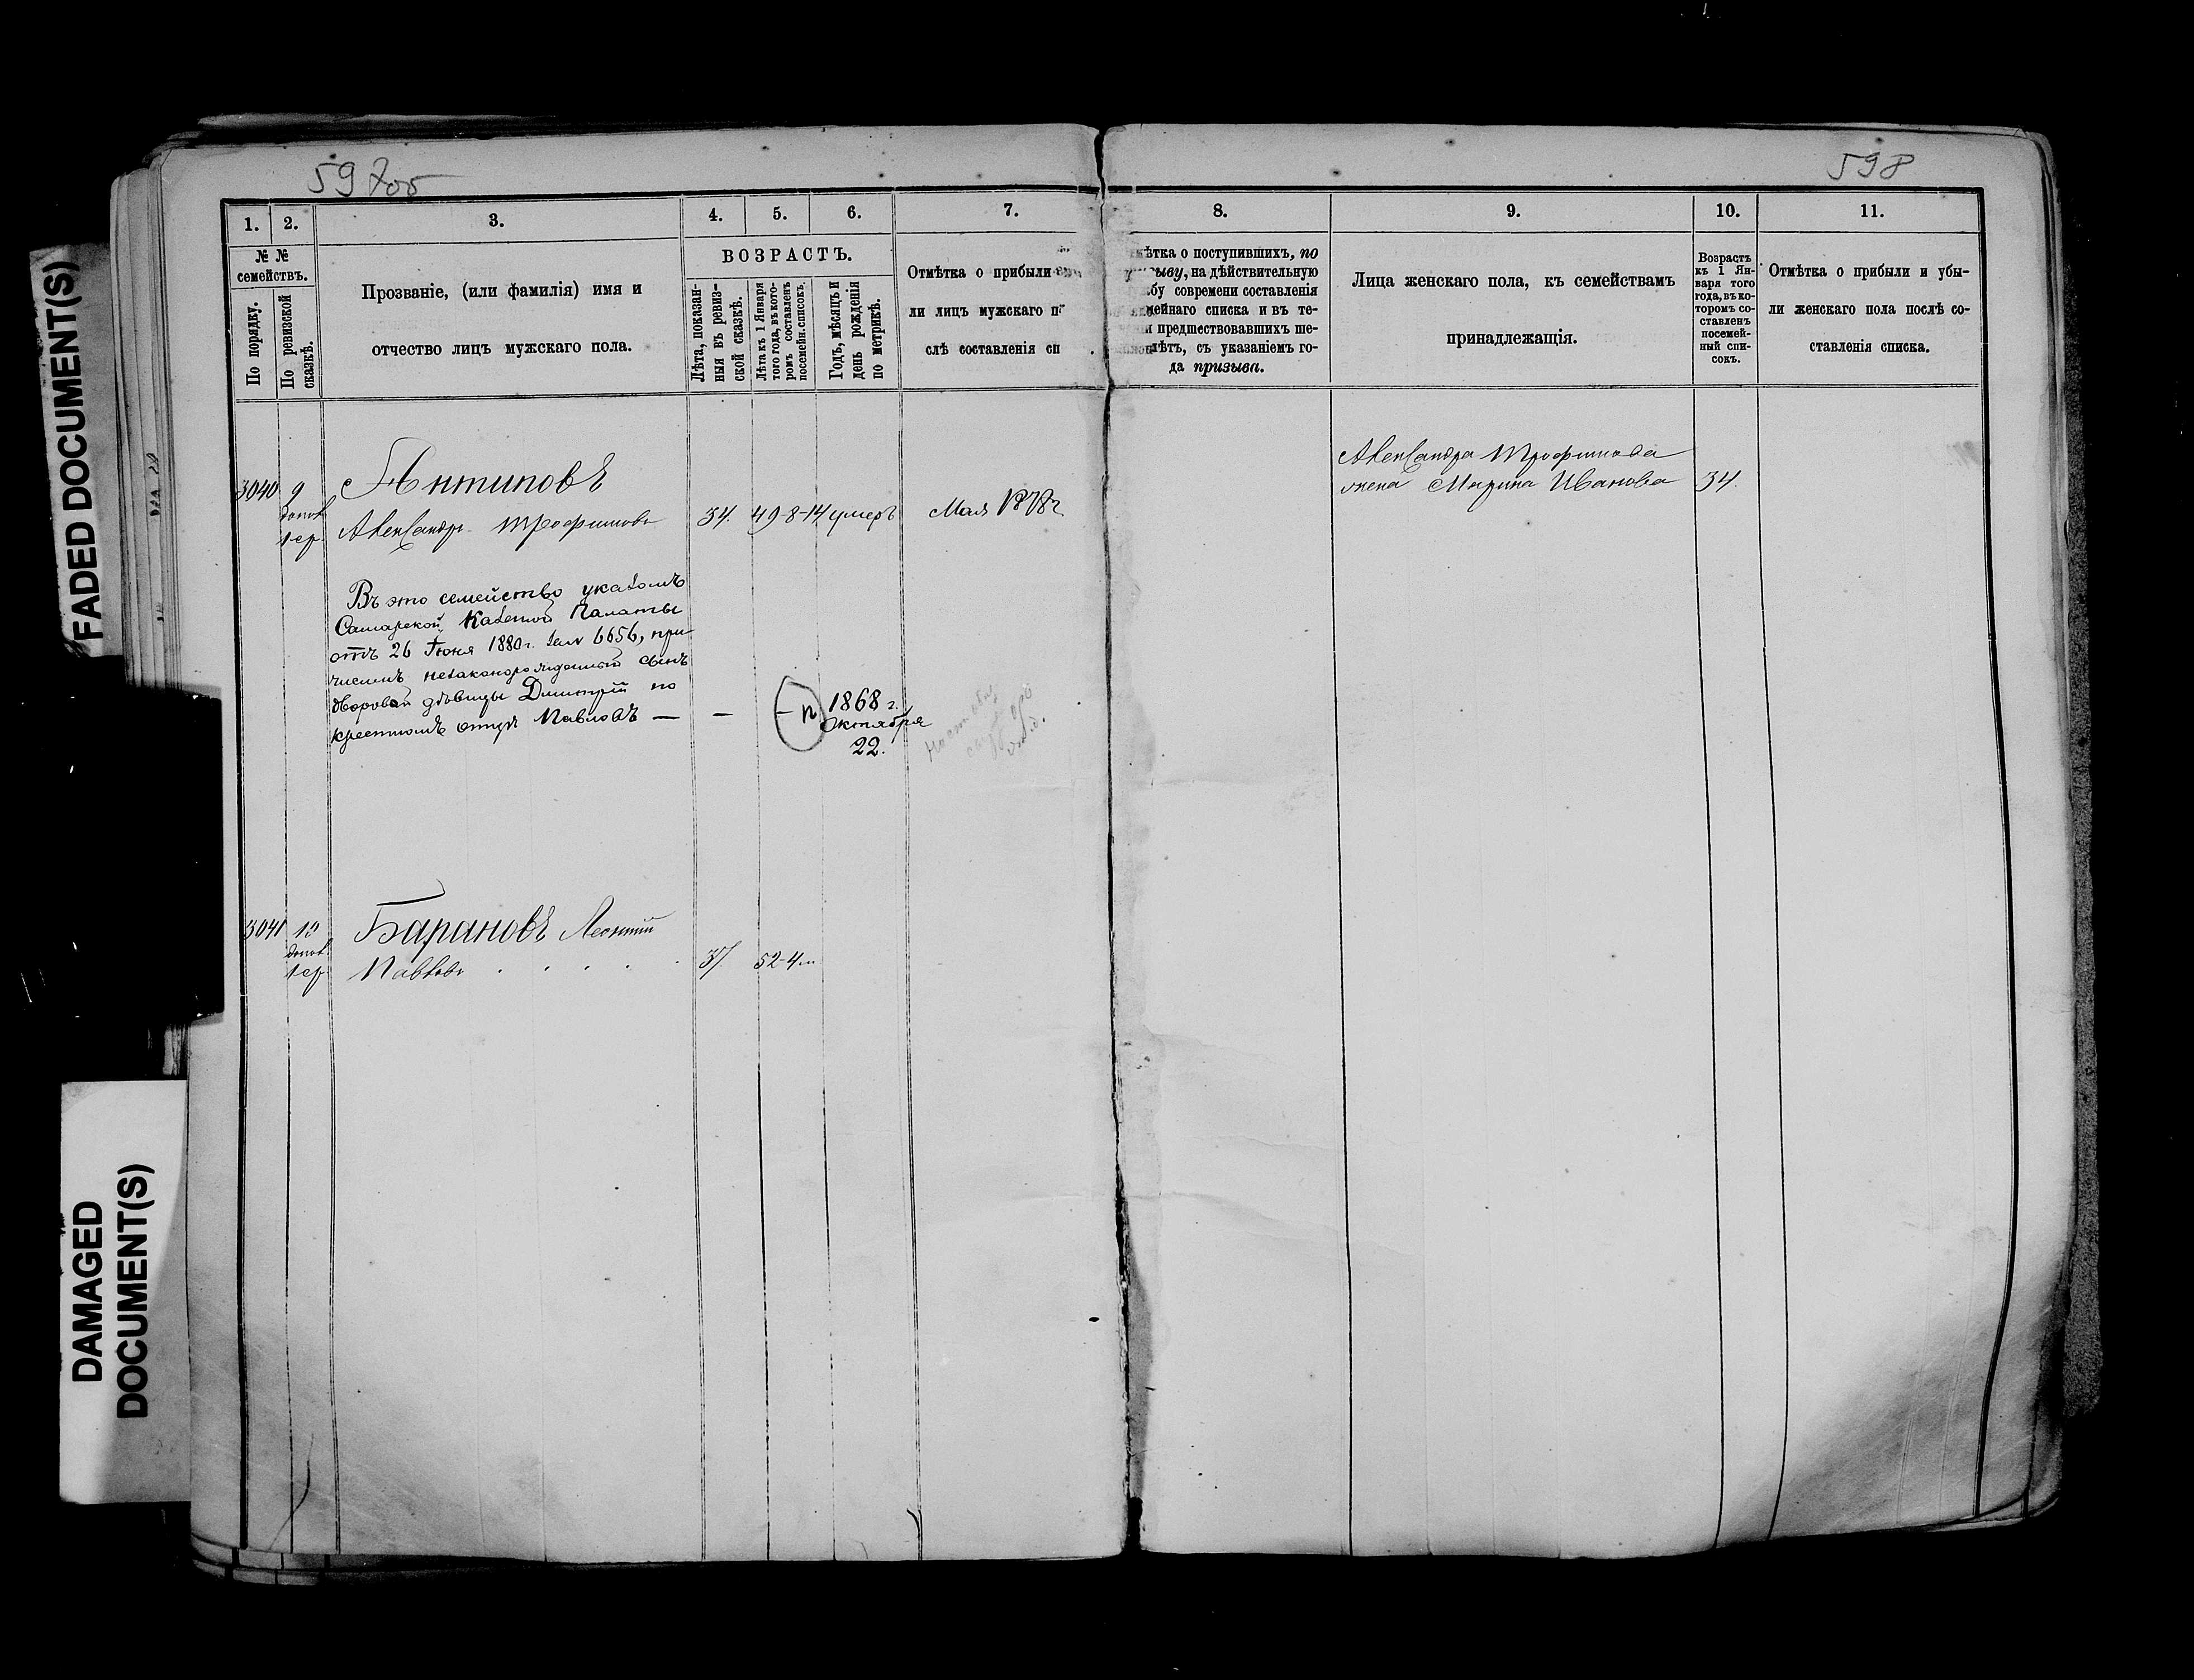 597об
598
1. 2. 3. 4. 5. 6. 7. 8. 9. 10. 11.
№ №
семействъ.
По порядку.
По ревизской
сказкѣ.
Прозваніе, (или фамилія) имя и
отчество лицъ мужскаго пола.
ВОЗРАСТЪ.
Лѣта, показан-
ныя въ ревиз-
ской сказкѣ.
Лѣта къ 1 Января
того года, въ кото-
ромъ составленъ
посемейн. списокъ.
Годъ, мѣсяцъ и
день рожденія
по метрикѣ.
Отмѣтка о прибыли
ли лицъ мужскаго п
слѣ составленія сп
ѣтка о поступившихъ, по
ыву, на дѣйствительную
бу современи составленія
мейнаго списка и въ те-
и предшествовавшихъ ше-
лѣтъ, съ указаніемъ го-
да призыва.
Лица женскаго пола, къ семействамъ
принадлежащія.
Возрастъ
къ 1 Ян-
варя того
года, въ ко-
торомъ со-
ставленъ
посемей-
ный спи-
сокъ.
Отмѣтка о прибыли и убы-
ли женскаго пола послѣ со-
ставленія списка.
3040 9 Антиповъ
допол
1 ср Александръ Трофимовъ 34. 49-8-14 умеръ Мая 1878 г.
Александра Трофимова
жена Марина Иванова 34.
Въ это семейство указомъ
Самарской Казенной Палаты
отъ 26 Іюня 1880 г. за № 6656, при
численъ незаконнорожденный сынъ
дворовой дѣвицы Дмитрій по
крестномъ отцѣ Павловъ — — – п
1868 г.
Октября
22.
3041 12 Барановъ Леонтій
допол
1 ср Павловъ 37. 52-4 м
FADED DOCUMENT(S)
DAMAGED
DOCUMENT(S)